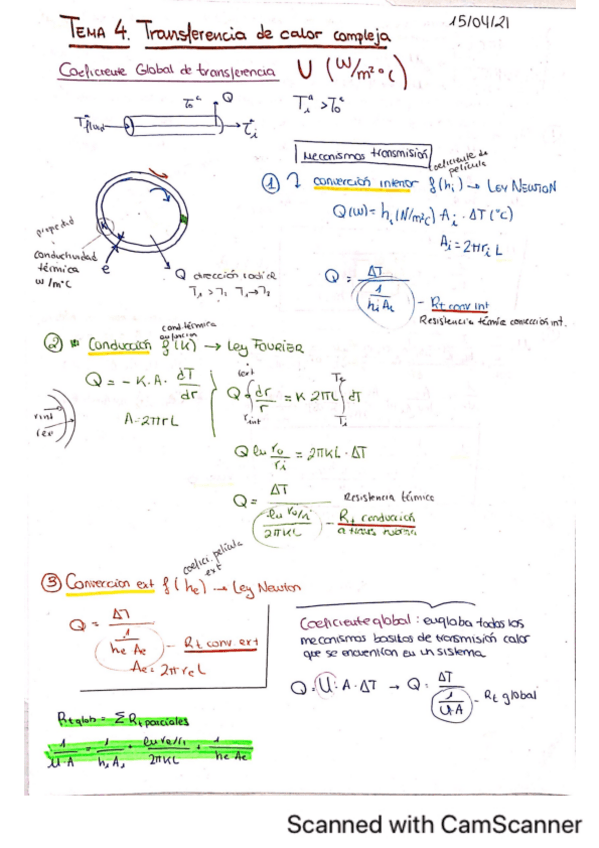 15/04/21
TEMA 4. Transferencia de calor compleja
Coeficiente Global de transferencia U (W/m²°C)
Q
T fluid
Mecanismos transmisión
① convección interior f(hi) → LEY NEWTON
coeficiente de película
Q(W) = hi (W/m²c) Ai · ΔT (°c)
Ai = 2πriL
propiedad
conductividad térmica
W/m°C
e
Q dirección radial
Q = ΔT / (1 / hiAi) - Rt conv int
Resistencia térmica convección int.
② Conducción f(K) → Ley FOURIER
cond. térmica
Q = -K.A. dT/dr
A = 2πrL
rint
rext
Q ∫ dr/r = K 2πL ∫ dT
Q ln ro/ri = 2πKL · ΔT
Q = ΔT / (ln ro/ri / 2πKL) - Rt conducción
Resistencia térmica
③ Convección ext f(he) → Ley Newton
coefici. película ext
Q = ΔT / (1 / he Ae) - Rt conv ext
Ae = 2πreL
Coeficiente global: engloba todos los
mecanismos basicos de transmisión calor
que se encuentran en un sistema
Q = U · A · ΔT → Q = ΔT / (1 / U·A) - Rt global
Rt glob = Σ Rt parciales
1/U·A = 1/hiAi + ln re/ri / 2πKL + 1/heAe
Scanned with CamScanner